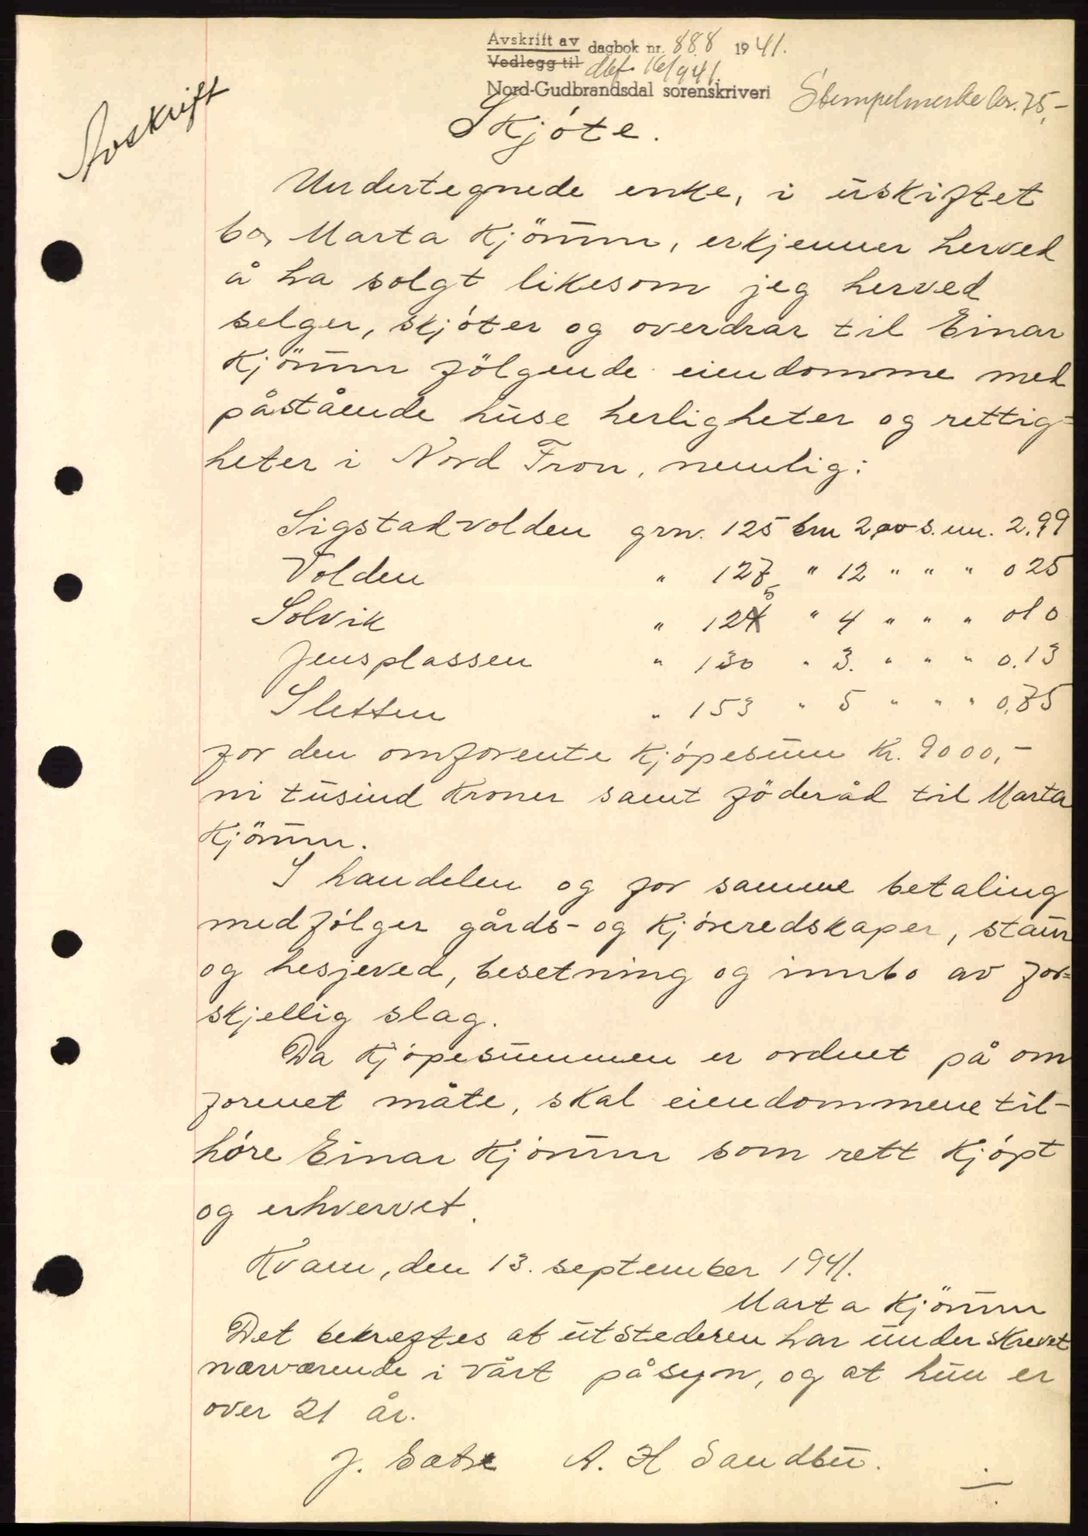 Avskrift av dagbok nr. 888 1941.
Vedlegg til dbf. 16/9 41.
Nord-Gudbrandsdal sorenskriveri
Stempelmerke kr. 75,-
Avskrift
Skjóte.
Undertegnede enke, i uskiftet
bo, Marta Kjörum, erkjenner herved
å ha solgt likesom jeg herved
selger, skjóter og overdrar til Einar
Kjörum fölgende eiendomme med
påstående huse herligheter og rettig=
heter i Nord Fron, nemlig:
Sigstadvolden grn. 125 brn 2 av s.m. 2.99
Volden " 127 " 12 " " " 0 25
Solvik " 126 " 4 " " " 010
Jensplassen " 130 " 3. " " " 0.13
Sletten " 153 " 5 " " " 0,75
for den omforente kjópesum kr. 9000,-
ni tusind kroner samt föderåd til Marta
Kjörum.
I handelen og for samme betaling
medfólger gårds- og kjóreredskaper, staur
og hesjeved, besetning og innbo av for=
skjellig slag.
Da kjópesummen er ordnet på om
forenet måte, skal eiendommene til-
hóre Einar Kjorum som rett kjópt
og erhvervet.
Kvam, den 13. september 1941.
Marta Kjörum
Det bekreftes at utstederen har underskrevet
nærværende i vårt påsyn, og at hun er
over 21 år.
J. A. H Sandbu.